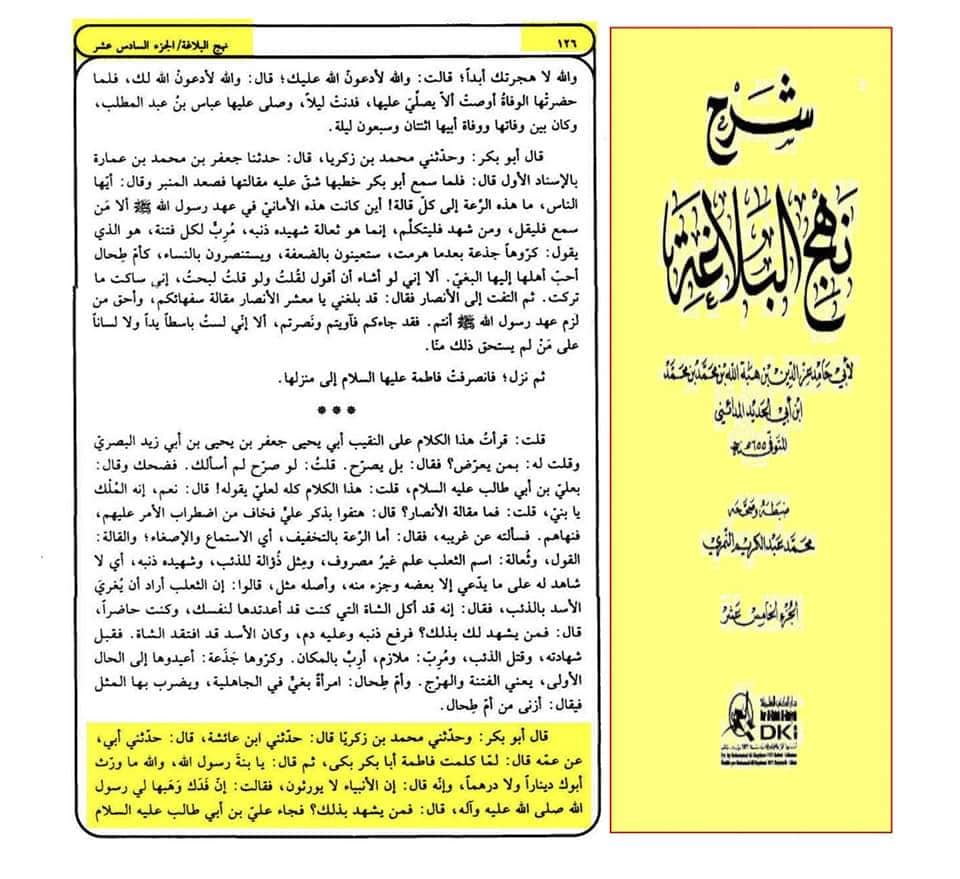 نهج البلاغة/الجزء السادس عشر
١٢٦
والله لا هجرتك أبداً؛ قالت: والله لأدعونّ الله عليك؛ قال: والله لأدعونّ الله لك، فلما
حضرتْها الوفاةُ أوصتْ ألاّ يصلّيَ عليها، فدفنتْ ليلاً، وصلى عليها عباس بنُ عبد المطلب،
وكان بين وفاتها ووفاة أبيها اثنتان وسبعون ليلة.
قال أبو بكر: وحدّثني محمد بن زكريا، قال: حدثنا جعفر بن محمد بن عمارة
بالإسناد الأول قال: فلما سمع أبو بكر خطبها شقّ عليه مقالتها فصعد المنبر وقال: أيّها
الناس، ما هذه الرِّعة إلى كلّ قالة! أين كانت هذه الأمانيّ في عهد رسول الله ﷺ ألا مَن
سمع فليقل، ومن شهد فليتكلّم، إنما هو ثعالة شهيده ذنبه، مُرِبٌّ لكل فتنة، هو الذي
يقول: كرّوها جذعة بعدما هرمت، ستعينون بالضعفة، ويستنصرون بالنساء، كأمّ طِحال
أحبّ أهلها إليها البغيّ. ألا إني لو أشاء أن أقول لقُلتُ ولو قلتُ لبحتُ، إني ساكت ما
تركت. ثم التفت إلى الأنصار فقال: قد بلغني يا معشر الأنصار مقالة سفهائكم، وأحق من
لزم عهد رسول الله ﷺ أنتم. فقد جاءكم فآويتم ونَصرتم، ألا إنّي لستُ باسطاً يداً ولا لساناً
على مَنْ لم يستحق ذلك منّا.
ثم نزل؛ فانصرفتْ فاطمة عليها السلام إلى منزلها.
قلت: قرأتُ هذا الكلام على النقيب أبي يحيى جعفر بن يحيى بن أبي زيد البصريّ
وقلت له: بمن يعرّض؟ فقال: بل يصرّح. قلتُ: لو صرّح لم أسألك. فضحك وقال:
بعليّ بن أبي طالب عليه السلام، قلت: هذا الكلام كله لعليّ يقوله! قال: نعم، إنه المُلْك
يا بنيّ، قلت: فما مقالة الأنصار؟ قال: هتفوا بذكر عليّ فخاف من اضطراب الأمر عليهم،
فنهاهم. فسألته عن غريبه، فقال: أما الرِّعة بالتخفيف، أي الاستماع والإصغاء؛ والقالة:
القول، وثُعالة: اسم الثعلب علم غيرُ مصروف، ومِثل ذُؤالة للذئب، وشهيده ذنبه، أي لا
شاهد له على ما يدّعي إلا بعضه وجزء منه، وأصله مثل، قالوا: إن الثعلب أراد أن يُغريَ
الأسد بالذئب، فقال: إنه قد أكل الشاة التي كنت قد أعددتها لنفسك، وكنت حاضراً،
قال: فمن يشهد لك بذلك؟ فرفع ذنبه وعليه دم، وكان الأسد قد افتقد الشاة. فقبل
شهادته، وقتل الذئب، ومُربّ: ملازم، أربّ بالمكان. وكرّوها جَذَعة: أعيدوها إلى الحال
الأولى، يعني الفتنة والهرْج. وأمّ طِحال: امرأةٌ بغيّ في الجاهلية، ويضرب بها المثل
فيقال: أزنى من أمّ طِحال.
قال أبو بكر: وحدّثني محمد بن زكريّا قال: حدّثني ابن عائشة، قال: حدّثني أبي،
عن عمّه قال: لمّا كلمت فاطمة أبا بكر بكى، ثم قال: يا بنةَ رسول الله، والله ما ورّث
أبوك ديناراً ولا درهماً، وإنّه قال: إن الأنبياء لا يورثون، فقالت: إنّ فَدَك وَهَبها لي رسول
الله صلى الله عليه وآله، قال: فمن يشهد بذلك؟ فجاء عليّ بن أبي طالب عليه السلام
شَرْح
نَهْجِ البَلَاغَة
لأبي حامد عز الدين بن هبة الله بن محمد بن محمد
ابن أبي الحديد المدائني
المتوفى ٦٥٥هـ
ضبطه وصححه
محمد عبد الكريم النمري
الجزء الخامس عشر
دار الكتب العلمية
Dar Al-Kotob Al-Ilmiyah
DKi